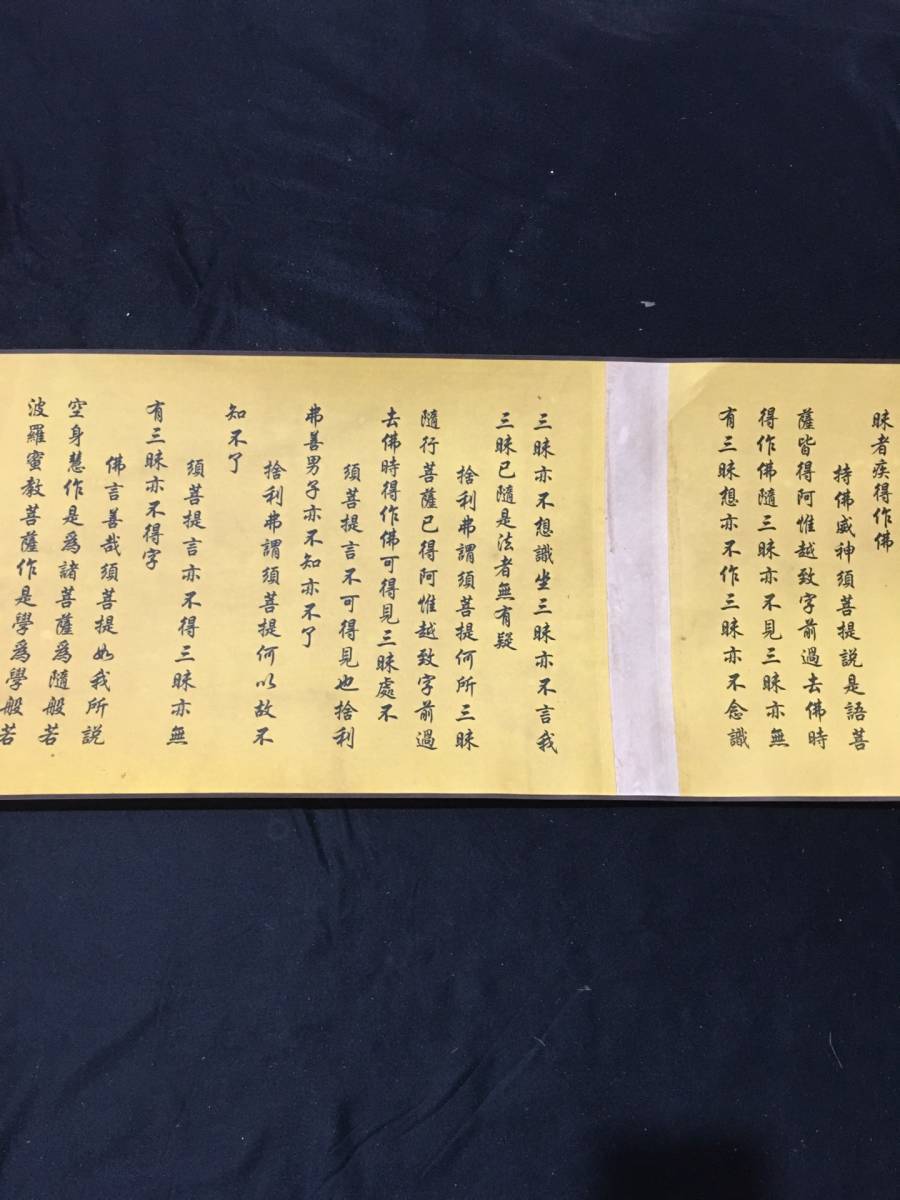 昧者疾得作佛
持佛威神須菩提説是語菩
薩皆得阿惟越致字前過去佛時
得作佛隨三昧亦不見三昧亦無
有三昧想亦不作三昧亦不念識
三昧亦不想識坐三昧亦不言我
三昧已隨是法者無有疑
捨利弗謂須菩提何所三昧
隨行菩薩已得阿惟越致字前過
去佛時得作佛可得見三昧處不
須菩提言不可得見也捨利
弗善男子亦不知亦不了
捨利弗謂須菩提何以故不
知不了
須菩提言亦不得三昧亦無
有三昧亦不得字
佛言善哉須菩提如我所説
空身慧作是爲諸菩薩爲隨般若
波羅蜜教菩薩作是學爲學般若